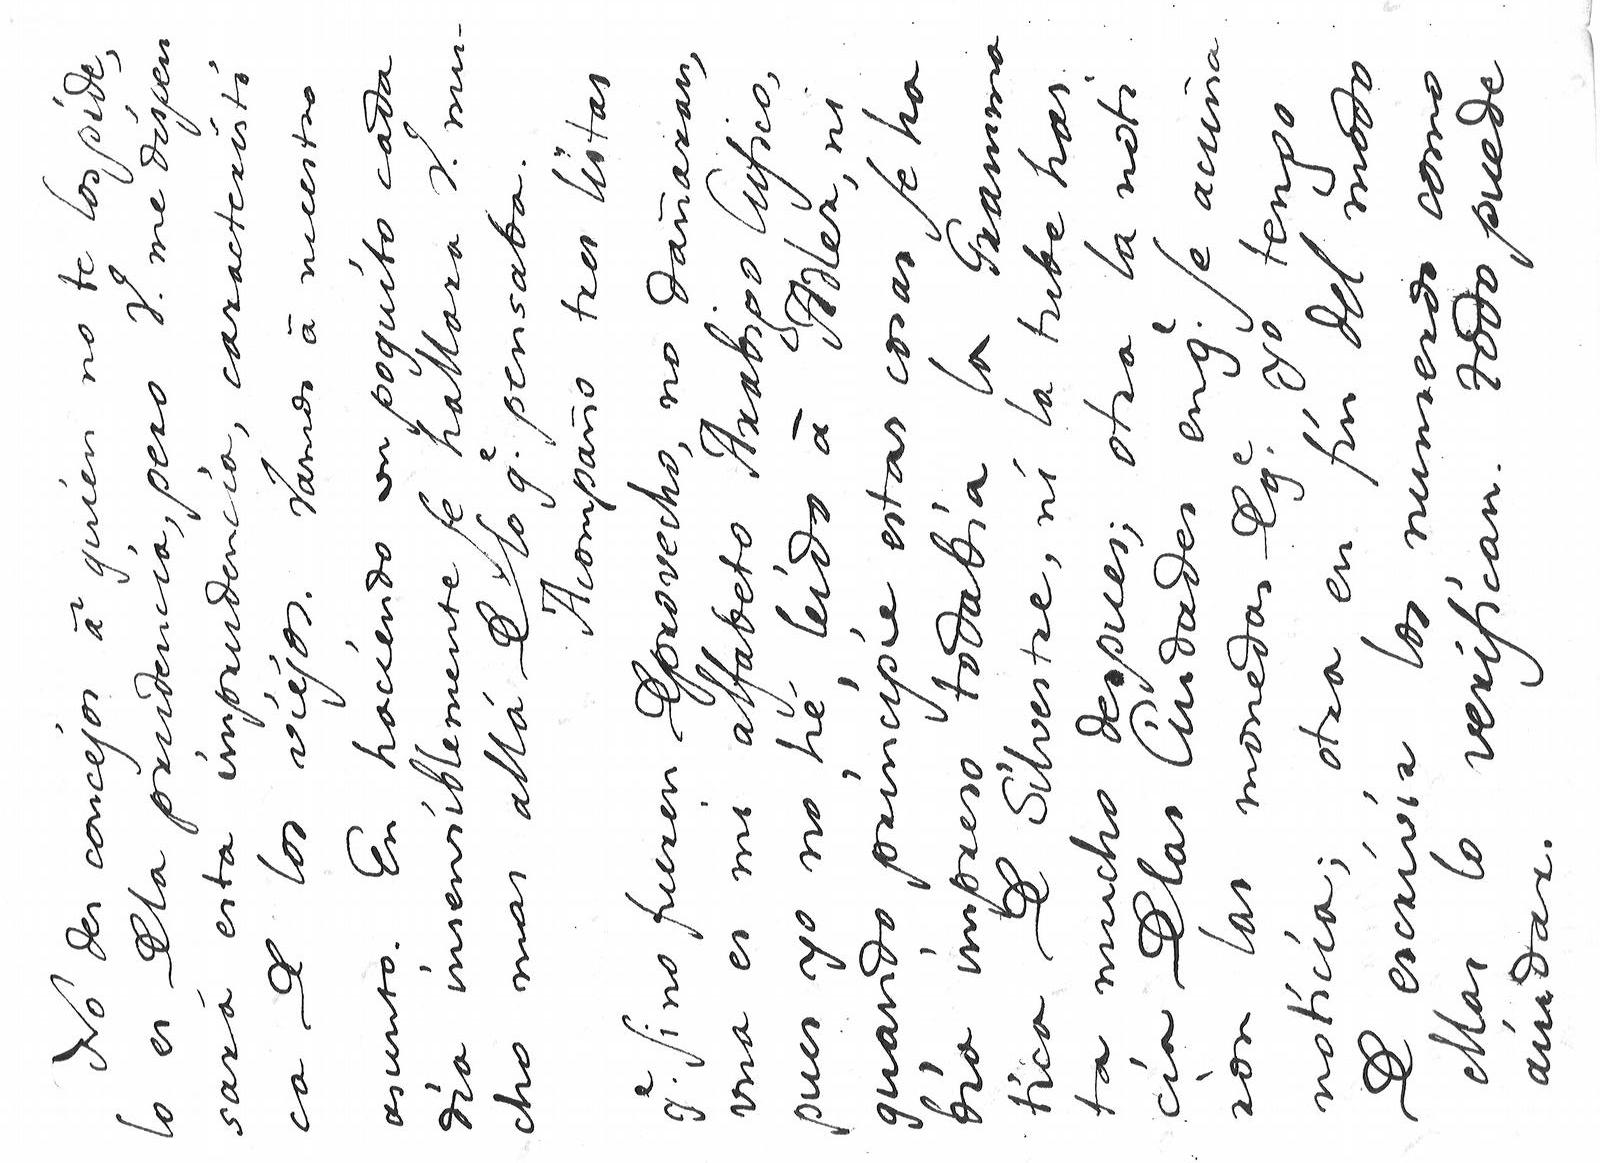 No des concejos â quien no te los pide,
lo es de la prudencia, pero V. me dispen
sará esta imprudencia, caracteristi
ca de los viejos. Vamos â nuestro
asunto. En haciendo un poquito cada
dia insensiblemente se hallara V. mu-
cho mas allá de lo q.e pensaba.
Acompaño tres listas
q.e si no fueren de provecho, no dañaran,
vna es mi alfabeto Arabigo Cufico,
pues yo no hé leido â Adler, ni
quando principié estas cosas se ha
bia impreso todabia la Gramma
tica de Silvestre, ni la tube has
ta mucho despues; otra la noti
cia de las Ciudades en q.e se acuña
ron las monedas de q.e yo tengo
noticia; otra en fin del modo
de escrivir los numeros como
ellas lo verifican. Todo puede
aiudar.